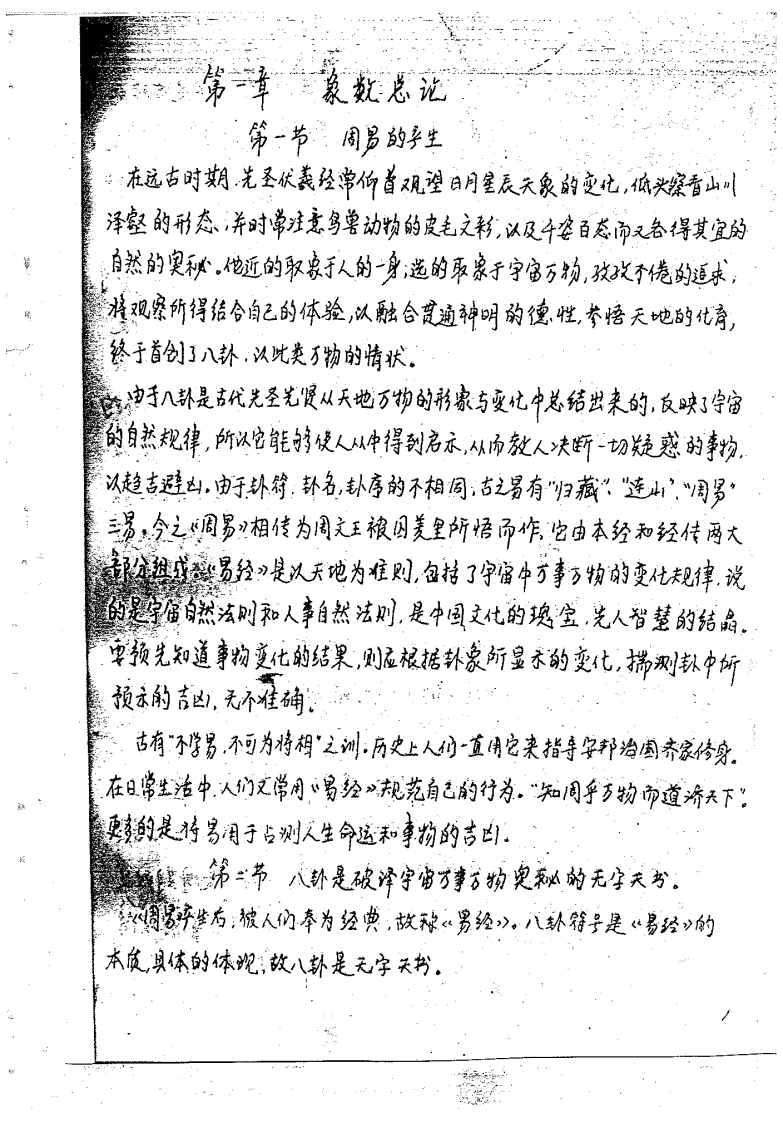 第一章 象数总论
第一节 周易的产生
在远古时期,先圣伏羲经常仰首观望日月星辰天象的变化,低头察看山川
泽壑的形态,并时常注意鸟兽动物的皮毛文彩,以及千姿百态而又各得其宜的
自然的奥秘。他近的取象于人的一身,远的取象于宇宙万物,孜孜不倦的追求,
将观察所得结合自己的体验,以融合贯通神明的德性,参悟天地的化育,
终于首创了八卦,以比类万物的情状。
由于八卦是古代先圣先贤从天地万物的形象与变化中总结出来的,反映了宇宙
的自然规律,所以它能够使人从中得到启示,从而教人决断一切疑惑的事物,
以趋吉避凶。由于卦符、卦名,卦序的不相同,古之易有“归藏”、“连山”、“周易”
三易。今之《周易》相传为周文王被囚羑里所悟而作,它由本经和经传两大
部分组成。《易经》是以天地为准则,包括了宇宙中万事万物的变化规律,说
的是宇宙自然法则和人事自然法则,是中国文化的瑰宝,先人智慧的结晶。
要预先知道事物变化的结果,则应根据卦象所显示的变化,揣测卦中所
预示的吉凶,无不准确。
古有“不学易,不可为将相”之训。历史上人们一直用它来指导安邦治国齐家修身。
在日常生活中,人们又常用《易经》规范自己的行为。“知周乎万物而道济天下”。
更多的是将易用于占测人生命运和事物的吉凶。
第二节 八卦是破译宇宙万事万物奥秘的无字天书。
《周易》产生后,被人们奉为经典,故称《易经》。八卦符号是《易经》的
本质,具体的体现,故八卦是无字天书。
1